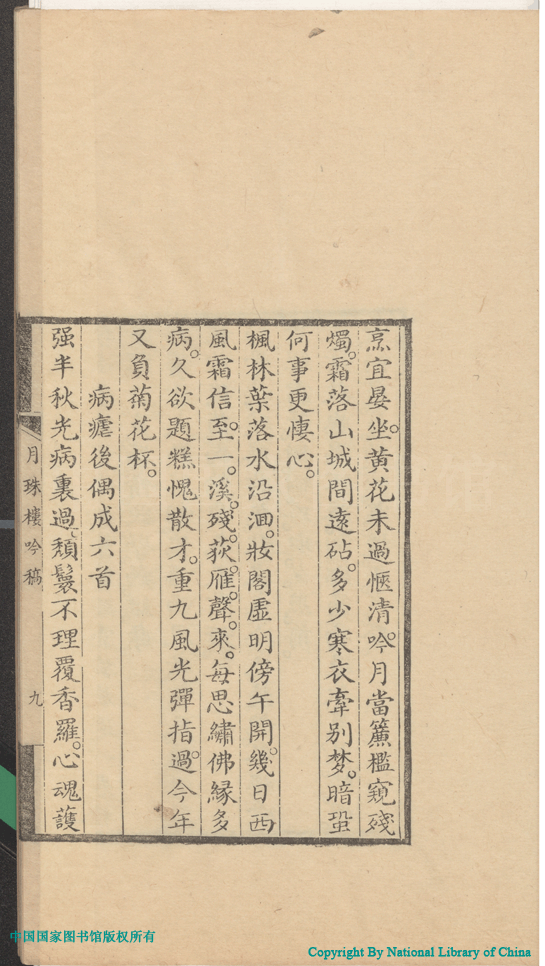 烹宜晏坐。黃花未過愜清吟。月當簾檻窺殘
燭。霜落山城間遠砧。多少寒衣牽别梦。暗蛩
何事更悽心。
楓林葉落水沿洄。妝閣虛明傍午開。幾日西
風霜信至。一溪殘荻雁聲來。每思繡佛緣多
病。久欲題糕愧散才。重九風光彈指過。今年
又負菊花杯。
病瘧後偶成六首
强半秋光病裏過。頽鬟不理覆香羅。心魂護
月珠樓吟稿
九
中国国家图书馆版权所有
Copyright By National Library of China